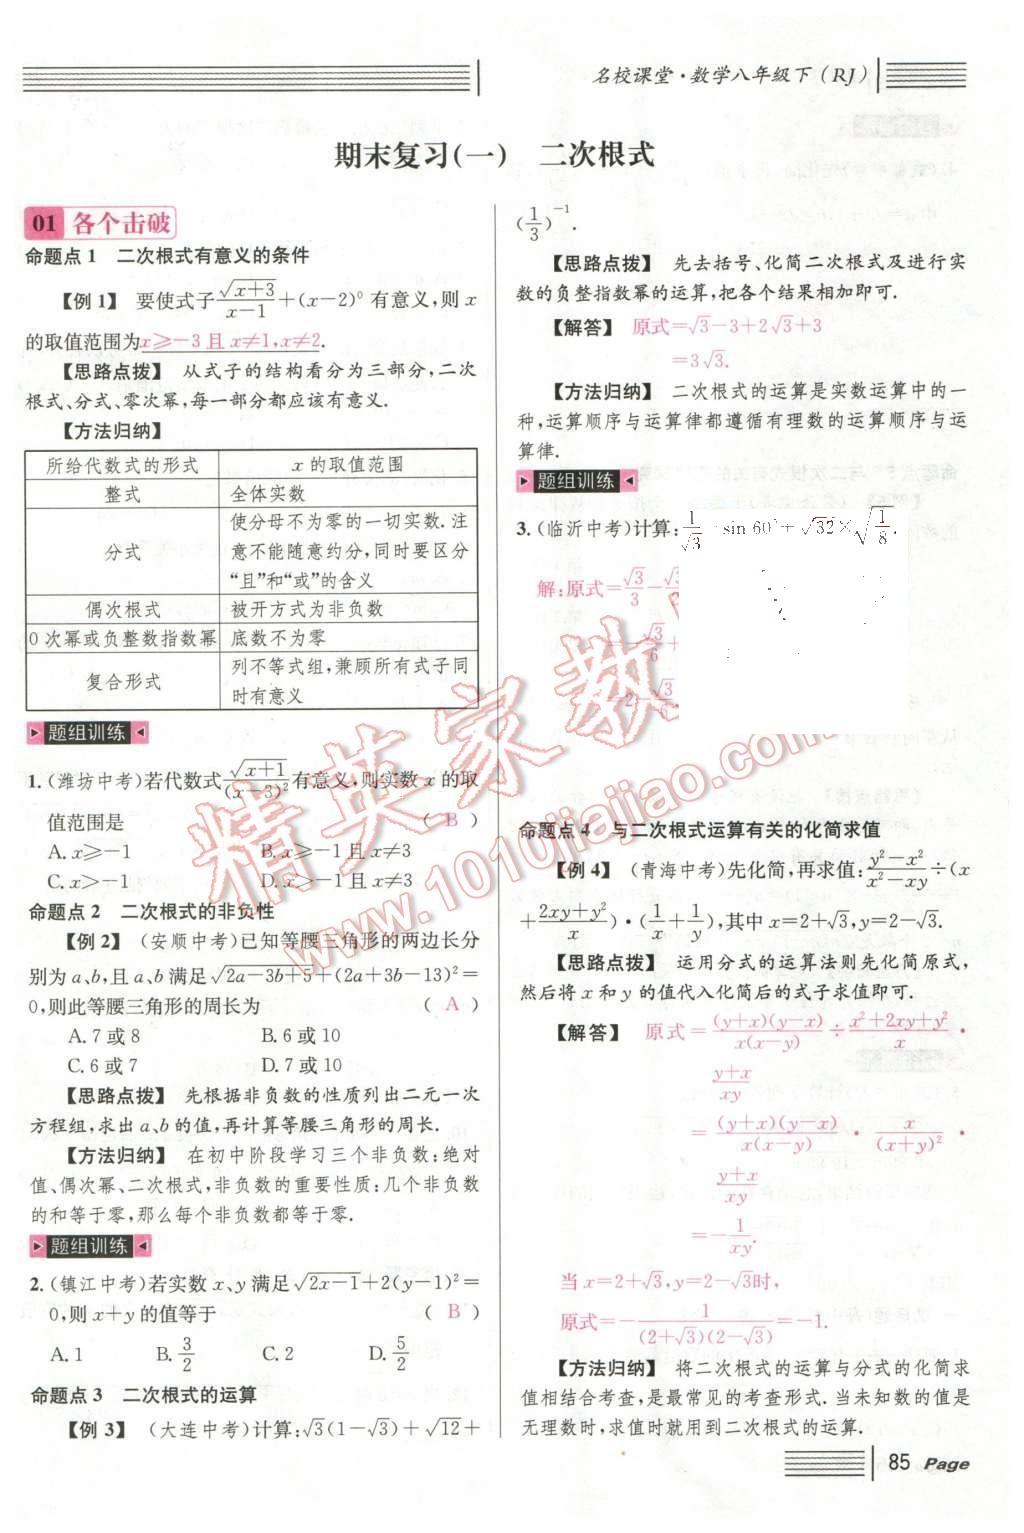 名校课堂·数学八年级下（RJ）
期末复习(一)　二次根式
01 各个击破
命题点1　二次根式有意义的条件
【例1】　要使式子√(x+3)/(x−1)+(x−2)⁰有意义,则x
的取值范围为x≥−3且x≠1,x≠2.
【思路点拨】　从式子的结构看分为三部分,二次
根式、分式、零次幂,每一部分都应该有意义.
【方法归纳】
所给代数式的形式　x的取值范围
整式　全体实数
分式　使分母不为零的一切实数.注
意不能随意约分,同时要区分
“且”和“或”的含义
偶次根式　被开方式为非负数
0次幂或负整数指数幂　底数不为零
复合形式　列不等式组,兼顾所有式子同
时有意义
题组训练
1.(潍坊中考)若代数式√(x+1)/(x−3)²有意义,则实数x的取
值范围是　（ B ）
A.x≥−1　B.x≥−1且x≠3
C.x>−1　D.x>−1且x≠3
命题点2　二次根式的非负性
【例2】　(安顺中考)已知等腰三角形的两边长分
别为a、b,且a、b满足√(2a−3b+5)+(2a+3b−13)²=
0,则此等腰三角形的周长为　（ A ）
A.7或8　B.6或10
C.6或7　D.7或10
【思路点拨】　先根据非负数的性质列出二元一次
方程组,求出a、b的值,再计算等腰三角形的周长.
【方法归纳】　在初中阶段学习三个非负数:绝对
值、偶次幂、二次根式,非负数的重要性质:几个非负数
的和等于零,那么每个非负数都等于零.
题组训练
2.(镇江中考)若实数x、y满足√(2x−1)+2(y−1)²=
0,则x+y的值等于　（ B ）
A.1　B.3/2　C.2　D.5/2
命题点3　二次根式的运算
【例3】　(大连中考)计算:√3(1−√3)+√12+
(1/3)⁻¹.
【思路点拨】　先去括号、化简二次根式及进行实
数的负整指数幂的运算,把各个结果相加即可.
【解答】　原式=√3−3+2√3+3
=3√3.
【方法归纳】　二次根式的运算是实数运算中的一
种,运算顺序与运算律都遵循有理数的运算顺序与运
算律.
题组训练
3.(临沂中考)计算:1/√3 sin 60°+√32×√(1/8).
解:原式=√3/3−√3
√3/6+
2−√3/6.
命题点4　与二次根式运算有关的化简求值
【例4】　(青海中考)先化简,再求值:(y²−x²)/(x²−xy)÷(x
+(2xy+y²)/x)·(1/x+1/y),其中x=2+√3,y=2−√3.
【思路点拨】　运用分式的运算法则先化简原式,
然后将x和y的值代入化简后的式子求值即可.
【解答】　原式=(y+x)(y−x)/x(x−y)÷(x²+2xy+y²)/x·
(y+x)/xy
=(y+x)(y−x)/x(x−y)·x/(x+y)²·
(y+x)/xy
=−1/xy.
当x=2+√3,y=2−√3时,
原式=−1/(2+√3)(2−√3)=−1.
【方法归纳】　将二次根式的运算与分式的化简求
值相结合考查,是最常见的考查形式.当未知数的值是
无理数时,求值时就用到二次根式的运算.
85 Page
精英家教
www.1010jiajiao.com